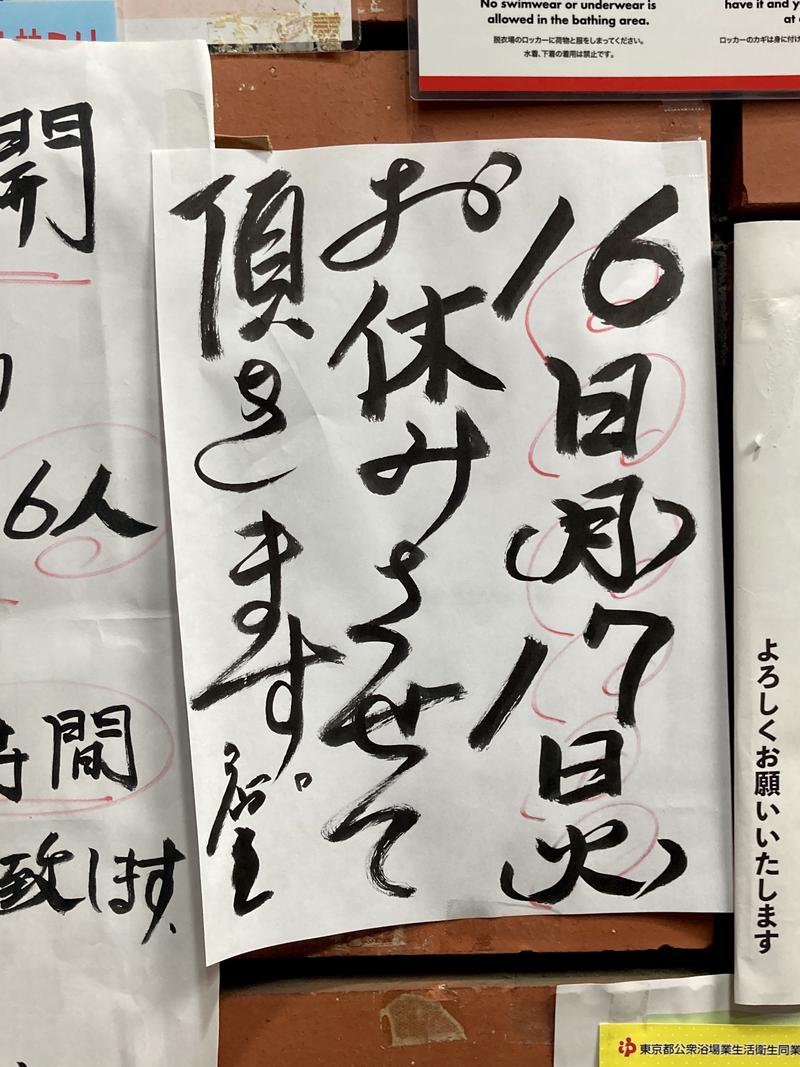 No swimwear or underwear is
allowed in the bathing area.
脱衣場のロッカーに荷物と服をしまってください。
水着、下着の着用は禁止です。
have it and y
at
ロッカーのカギは身に付け
16日(月)17日(火)
お休みさせて
頂きます。店主
開
6人
時間
致します、
よろしくお願いいたします
東京都公衆浴場業生活衛生同業